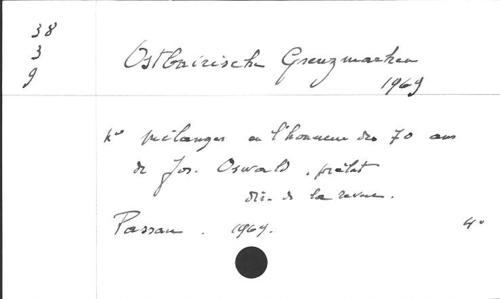 38
3
9
Ostbairische Grenzmarken
1969
mélanges en l'honneur des 70 ans
de Jos. Oswald, prélat
dir. de la revue.
Passau. 1969. 4°